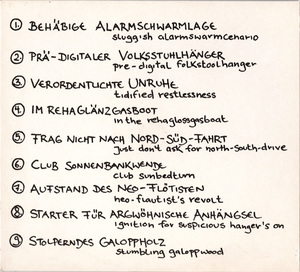 ① BEHÄBIGE ALARMSCHWARMLAGE
sluggish alarmswarmcenario
② PRÄ-DIGITALER VOLKSSTUHLHÄNGER
pre-digital folkstoolhanger
③ VERORDENTLICHTE UNRUHE
tidified restlessness
④ IM REHAGLÄNZGASBOOT
in the rehaglossgasboat
⑤ FRAG NICHT NACH NORD-SÜD-FAHRT
just don't ask for north-south-drive
⑥ CLUB SONNENBANKWENDE
club sunbedturn
⑦ AUFSTAND DES NEO-FLÖTISTEN
neo-flautist's revolt
⑧ STARTER FÜR ARGWÖHNISCHE ANHÄNGSEL
ignition for suspicious hanger's on
⑨ STOLPERNDES GALOPPHOLZ
stumbling galoppwood